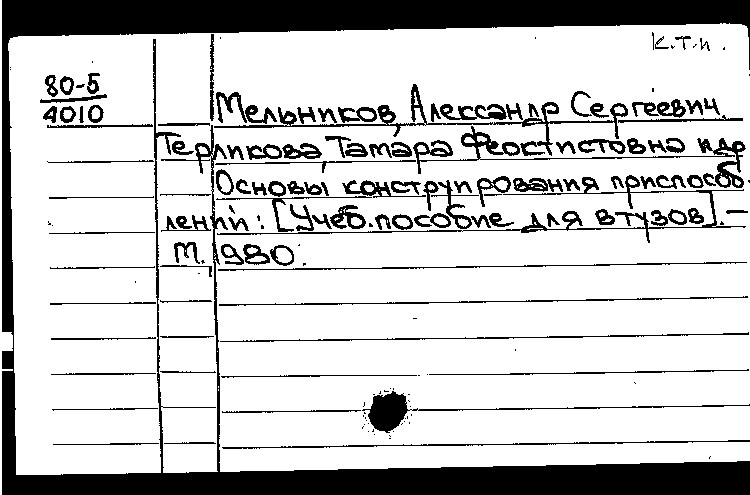 К.Т.и.
80-5
4010
Мельников, Александр Сергеевич.
Терликова, Тамара Феоктистовна и др
Основы конструирования приспособ-
лений: [Учеб. пособие для втузов]. –
М. 1980.